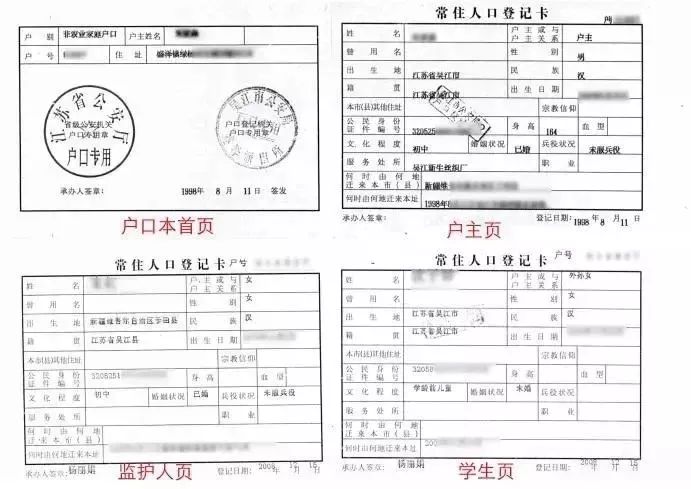 户 别 非农业家庭户口 户主姓名
户 号 住 址 盛泽镇绿
江苏省公安厅
省级公安机关
户口专用章
户口专用
吴江市公安局
户口登记机关
户口专用章
承办人签章: 1998年 8 月 11日 签发
户口本首页
常住人口登记卡
姓 名 户主或与户主关系 户主
曾 用 名 性 别 男
出 生 地 江苏省吴江市 民 族 汉
籍 贯 江苏省吴江市 出生日期
本市(县)其他住址 宗教信仰
公民身份证件编号 320525 身 高 164 血 型
文化程度 初中 婚姻状况 已婚 兵役状况 未服兵役
服 务 处 所 吴江新生丝织厂 职 业
何时由何地迁来本市(县) 新疆维
何时由何地迁来本址 1998年8
承办人签章: 登记日期: 1998年 8 月 11 日
户主页
常住人口登记卡 户号
姓 名 户主或与户主关系 女
曾 用 名 性 别 女
出 生 地 新疆维吾尔自治区于田县 民 族 汉
籍 贯 江苏省吴江县 出生日期
本市(县)其他住址 宗教信仰
公民身份证件编号 3205251 身 高 血 型
文化程度 初中 婚姻状况 已婚 兵役状况 未服兵役
服 务 处 所 职 业
何时由何地迁来本市(县)
何时由何地迁来本址
承办人签章: 杨丽娟 登记日期: 2008 12 15
监护人页
常住人口登记卡 户号
姓 名 户主或与户主关系 外孙女
曾 用 名 性 别 女
出 生 地 江苏省吴江市 民 族 汉
籍 贯 江苏省吴江市 出生日期
本市(县)其他住址 宗教信仰
公民身份证件编号 32058 身 高 血 型
文化程度 学龄前儿童 婚姻状况 未婚 兵役状况
服 务 处 所 职 业
何时由何地迁来本市(县)
何时由何地迁来本址 200
承办人签章: 杨丽娟 登记日期: 2008年 12 15
学生页